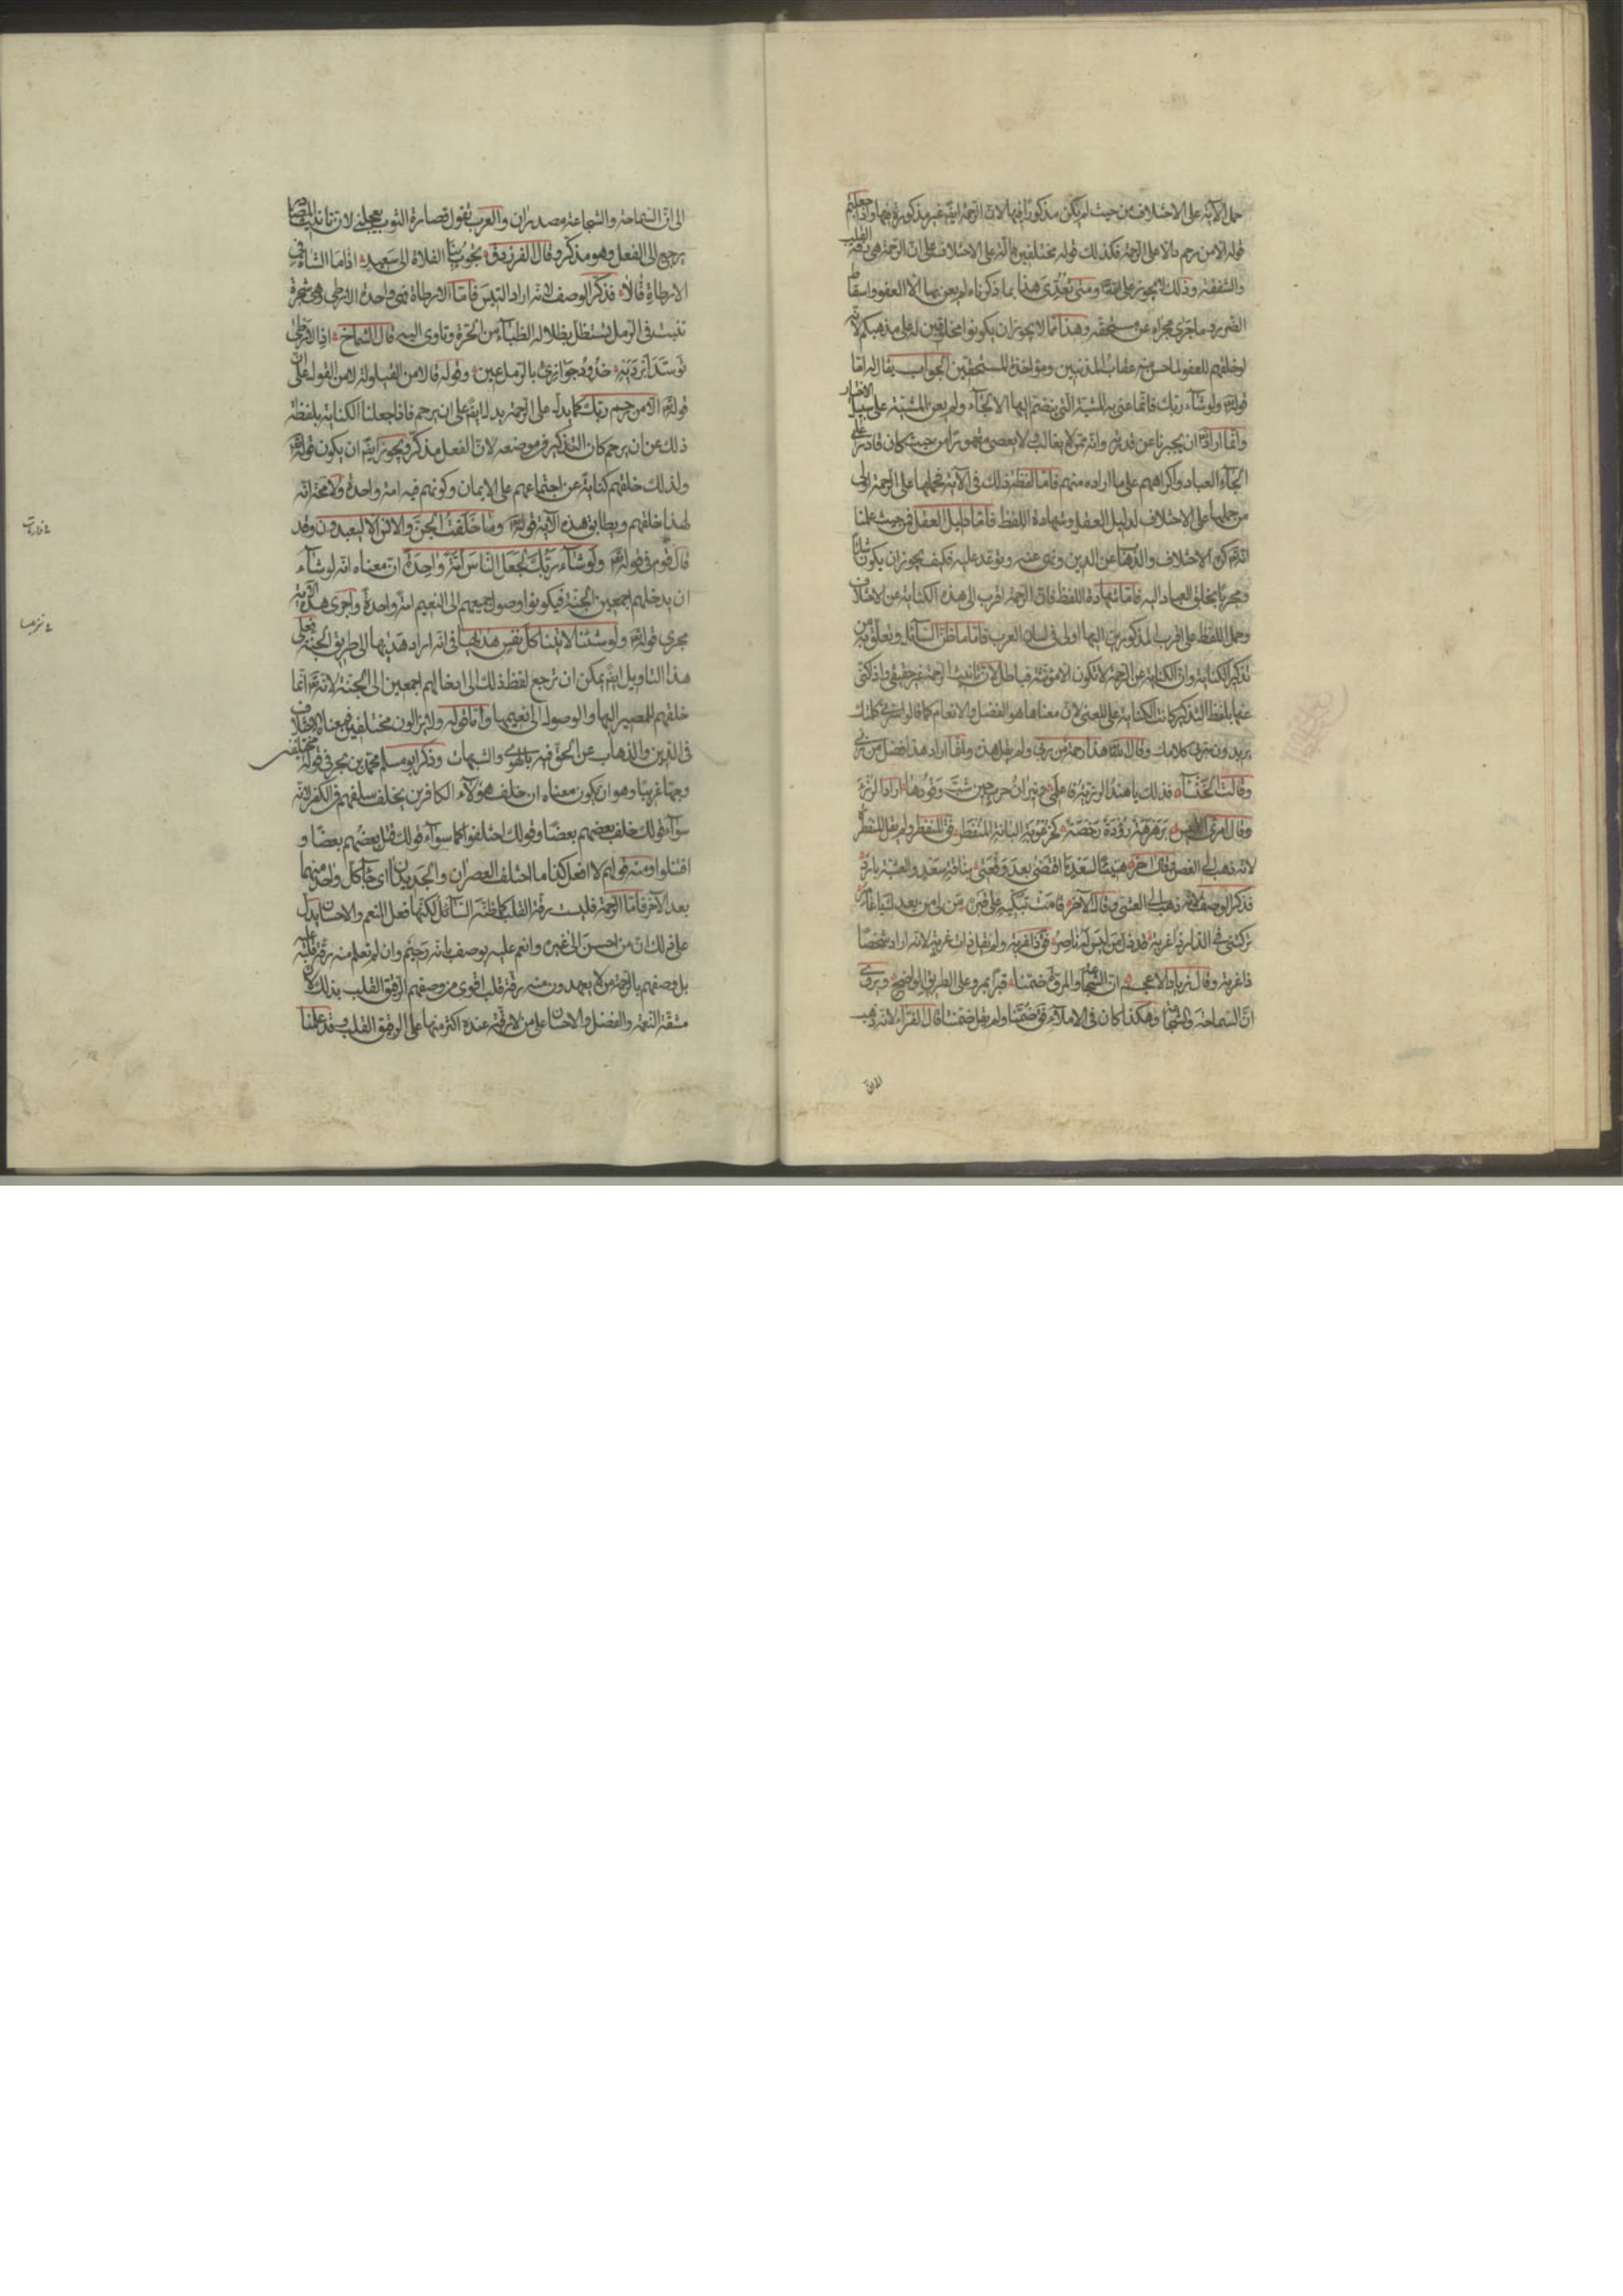 حمل الآية على الاختلاف من حيث لم يكن مذكورا فيها لان الرحمة ايضا غير مذكورة فيها واذا جعلتم
قوله الا من رحم دالا على الرحمة فكذلك قوله مختلفين دالة على الاختلاف على ان الرحمة هي رقة القلب
والشفقة وذلك لا يجوز على الله ومتى تعدى هذا بما ذكرناه لم يعن بها الا العفو واسقاط
الضرر وما جرى مجراه عن مستحقه وهذا مما لا يجوز ان يكونوا مخلوقين له على مذهبكم لانه
لو خلقهم للعفو لما حسن منه عقاب المذنبين ومؤاخذة المستحقين الجواب يقال له اما
قوله ولو شاء ربك فانما عنى به المشية التي ينضم اليها الالجاء ولم يعن المشية على سبيل الاختيار
وانما اراد ان يخبرنا عن قدرته وانه ممن لا يغالب ولا يعصى مقهورا من حيث كان قادرا على
الجاء العباد واكراههم على ما اراده منهم فاما لفظة ذلك في الآية فحملها على الرحمة اولى
من حملها على الاختلاف لدليل العقل وشهادة اللفظ فاما دليل العقل فمن حيث علمنا
انه كره الاختلاف والذهاب عن الدين ونهى عنه وتوعد عليه فكيف يجوز ان يكون شائيا
ومجريا بخلق العباد اليه فاما شهادة اللفظ فلان الرحمة اقرب الى هذه الكناية من الاختلاف
وحمل اللفظ على اقرب المذكورين اليها اولى في لسان العرب فاما ما ظن السائل وتعلق به من
تذكير الكناية وان الكناية عن الرحمة لا تكون الا مؤنثة فباطل لان تانيث الرحمة غير حقيقي واذا كنى
عنها بلفظ التذكير كانت الكناية على المعنى لان معناها هو الفضل والانعام كما قالوا سرني كلمتك
يريدون سرني كلامك وقال هذا رحمة من ربي ولم يقل هذه وانما اراد هذا فضل من ربي
وقالت الخنساء فذلك يا هند الرزية فاعلمي ونيران حرب حين شب وقودها اراد الرزء
وقال امرئ القيس برهرهة رؤدة رخصة كخرعوبة البانة المنفطر فقال المنفطر ولم يقل المنفطرة
لانه ذهب الى الغصن وقال آخر هنيئا لسعد ما اقتضى بعد وقعتي بناقة سعد والعشية بارد
فذكر الوصف لانه ذهب الى العشي وقال الآخر قامت تبكيه على قبره من لي من بعدك يا عامر
تركتني في الدار ذا غربة قد ذل من ليس له ناصر فقال ذا غربة ولم يقل ذات غربة لانه اراد شخصا
ذا غربة وقال زياد الاعجم ان الشجاعة والمروة ضمنا قبرا بمرو على الطريق الواضح ويروى
ان السماحة والشجاعة وهكذا كان في الاملاء فقال ضمنا ولم يقل ضمنتا قال الفراء لانه ذهب
الى ان
الى ان السماحة والشجاعة مصدران والعرب تقول قصارة الثوب يعجبني لان تانيث المصادر
يرجع الى الفعل وهو مذكر وقال الفرزدق تجوب بنا الفلاة الى سعيد اذا ما الشاة في
الارطاة قالا فذكر الوصف لانه اراد التيس فاما الارطاة فهي واحدة الارطى وهي شجرة
تنبت في الرمل تستظل بظلاله الظباء من الحر وتاوى اليه قال الشماخ اذا الارطى
توسد ابرديه خدود جوازئ بالرمل عين وقوله قالا من القيلولة لا من القول على ان
قوله الا من رحم ربك كما يدل على الرحمة يدل ايضا على ان يرحم فاذا جعلنا الكناية بلفظة
ذلك عن ان يرحم كان التذكير في موضعه لان الفعل مذكر ويجوز ايضا ان يكون قوله
ولذلك خلقهم كناية عن اجتماعهم على الايمان وكونهم فيه امة واحدة ولا محالة انه
لهذا خلقهم ويطابق هذه الآية قوله وما خلقت الجن والانس الا ليعبدون وقد
قال قوم في قوله ولو شاء ربك لجعل الناس امة واحدة ان معناه انه لو شاء
ان يدخلهم اجمعين الجنة فيكونوا وصول جميعهم الى النعيم امة واحدة واجرى هذه الآية
مجرى قوله ولو شئنا لآتينا كل نفس هديها في انه اراد هديها الى طريق الجنة فعلى
هذا التاويل ايضا يمكن ان ترجع لفظة ذلك الى ادخالهم اجمعين الى الجنة لانه انما
خلقهم للمصير اليها والوصول الى نعيمها واما قوله ولا يزالون مختلفين فمعناه الاختلاف
في الدين والذهاب عن الحق فيه بالهوى والشبهات وذكر ابو مسلم محمد بن بحر في قوله مختلفين
وجها غريبا وهو ان يكون معناه ان خلف هؤلاء الكافرين يخلف سلفهم في الكفر لانه
سواء قولك خلف بعضهم بعضا وقولك اختلفوا كما سواء قولك قتل بعضهم بعضا و
اقتتلوا ومنه قولهم لا افعل كذا ما اختلف العصران والجديدان اي جاء كل واحد منهما
بعد الآخر فاما الرحمة فليست رقة القلب كما ظنه السائل لكنها فعل النعم والاحسان يدل
على ذلك ان من احسن الى غيره وانعم عليه يوصف بانه رحيم وان لم تعلم منه رقة قلب عليه
بل وصفهم بالرحمة من لا يعهدون منه رقة قلب اقوى من وصفهم الرقيق القلب بذلك لان
مشقة النعمة والفضل والاحسان على من لا رقة عنده اكثر منها على الرقيق القلب وقد علمنا